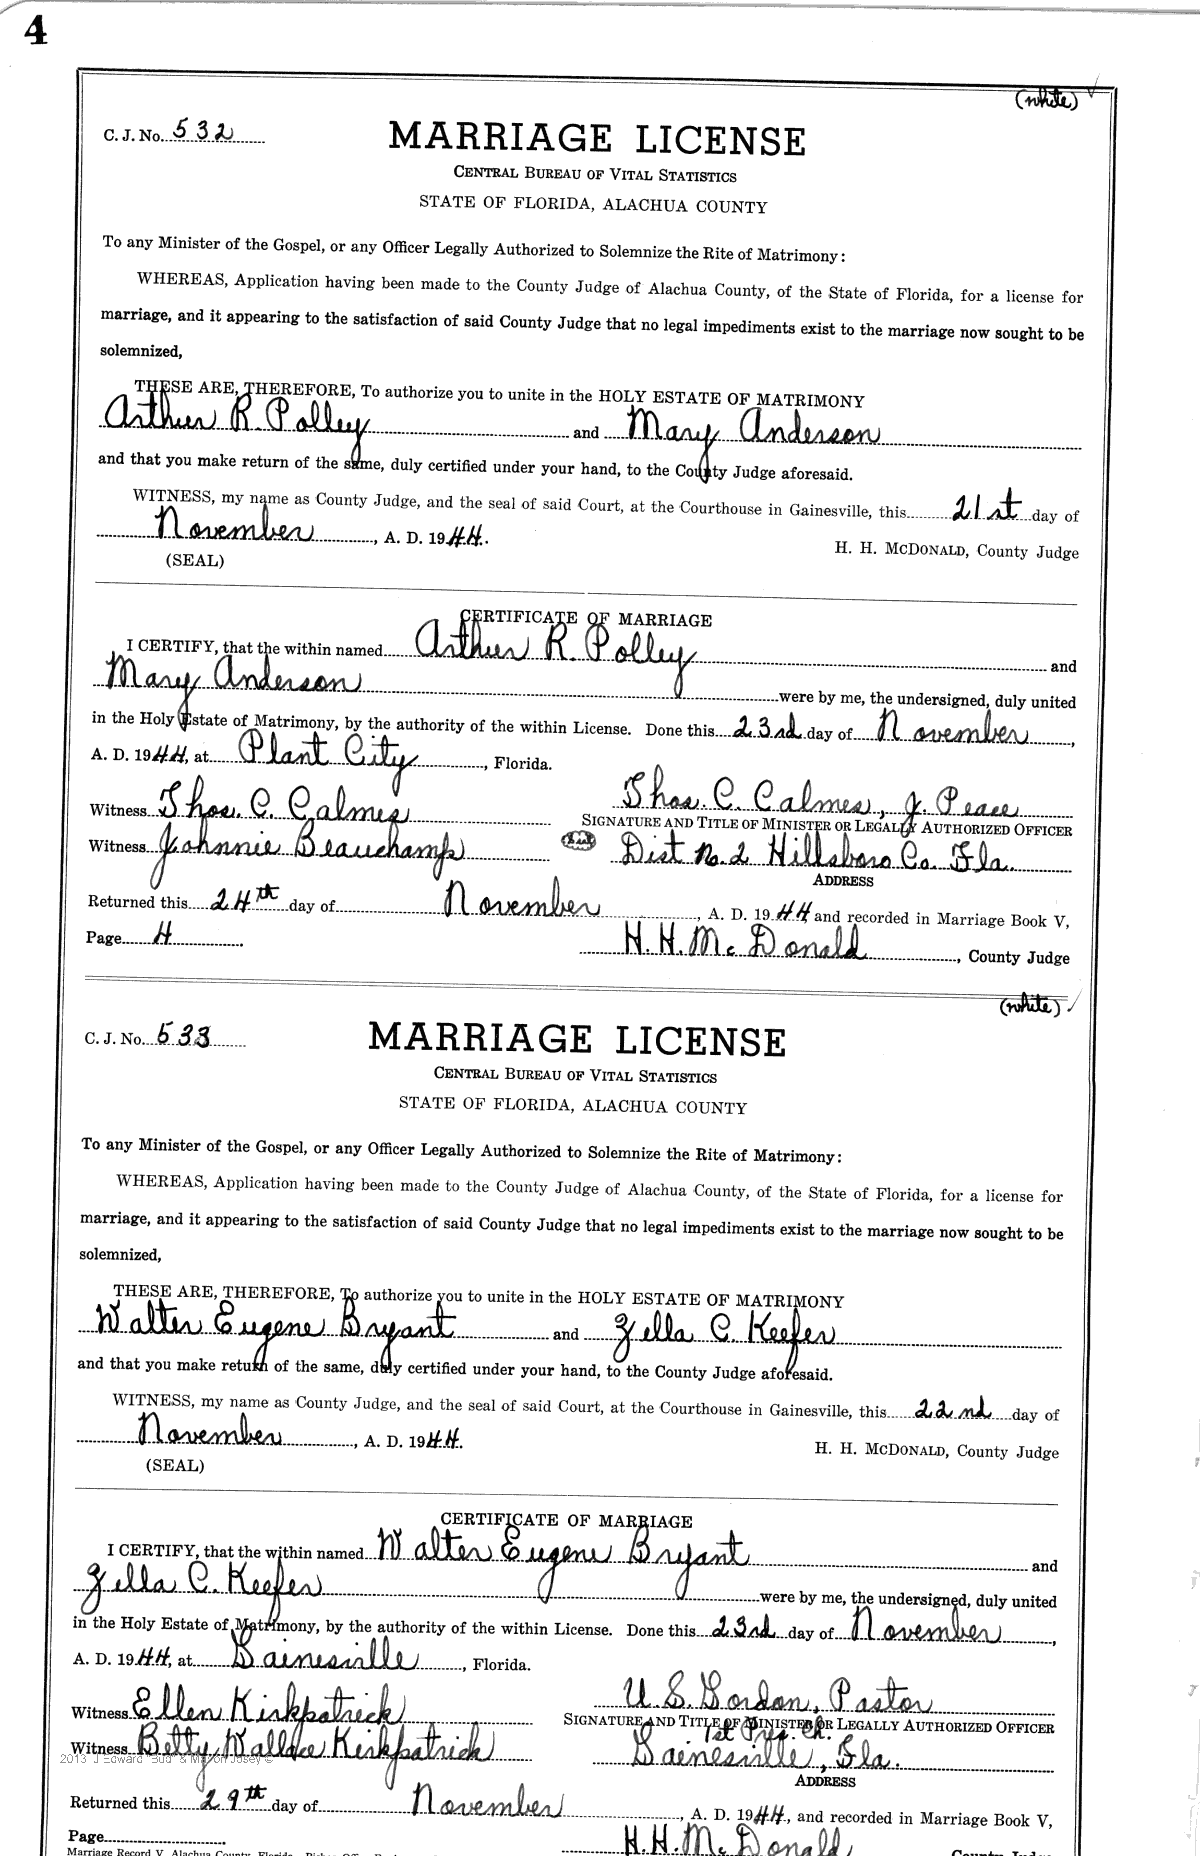 4
(white)
C. J. No. 532
MARRIAGE LICENSE
CENTRAL BUREAU OF VITAL STATISTICS
STATE OF FLORIDA, ALACHUA COUNTY
To any Minister of the Gospel, or any Officer Legally Authorized to Solemnize the Rite of Matrimony:
WHEREAS, Application having been made to the County Judge of Alachua County, of the State of Florida, for a license for
marriage, and it appearing to the satisfaction of said County Judge that no legal impediments exist to the marriage now sought to be
solemnized,
THESE ARE, THEREFORE, To authorize you to unite in the HOLY ESTATE OF MATRIMONY
Arthur R. Polley and Mary Anderson
and that you make return of the same, duly certified under your hand, to the County Judge aforesaid.
WITNESS, my name as County Judge, and the seal of said Court, at the Courthouse in Gainesville, this 21st day of
November, A. D. 1944.
H. H. MCDONALD, County Judge
(SEAL)
CERTIFICATE OF MARRIAGE
I CERTIFY, that the within named Arthur R. Polley and
Mary Anderson were by me, the undersigned, duly united
in the Holy Estate of Matrimony, by the authority of the within License. Done this 23rd day of November,
A. D. 1944, at Plant City, Florida.
Witness Thos. C. Calmes Thos. C. Calmes, J. Peace
SIGNATURE AND TITLE OF MINISTER OR LEGALLY AUTHORIZED OFFICER
Witness Johnnie Beauchamp (Seal) Dist No. 2 Hillsboro Co. Fla.
ADDRESS
Returned this 24th day of November, A. D. 1944 and recorded in Marriage Book V,
Page 4 H. H. McDonald, County Judge
(white)
C. J. No. 533
MARRIAGE LICENSE
CENTRAL BUREAU OF VITAL STATISTICS
STATE OF FLORIDA, ALACHUA COUNTY
To any Minister of the Gospel, or any Officer Legally Authorized to Solemnize the Rite of Matrimony:
WHEREAS, Application having been made to the County Judge of Alachua County, of the State of Florida, for a license for
marriage, and it appearing to the satisfaction of said County Judge that no legal impediments exist to the marriage now sought to be
solemnized,
THESE ARE, THEREFORE, To authorize you to unite in the HOLY ESTATE OF MATRIMONY
Walter Eugene Bryant and Zella C. Keefer
and that you make return of the same, duly certified under your hand, to the County Judge aforesaid.
WITNESS, my name as County Judge, and the seal of said Court, at the Courthouse in Gainesville, this 22nd day of
November, A. D. 1944.
H. H. MCDONALD, County Judge
(SEAL)
CERTIFICATE OF MARRIAGE
I CERTIFY, that the within named Walter Eugene Bryant and
Zella C. Keefer were by me, the undersigned, duly united
in the Holy Estate of Matrimony, by the authority of the within License. Done this 23rd day of November,
A. D. 1944, at Gainesville, Florida.
Witness Ellen Kirkpatrick U. S. Gordon, Pastor
SIGNATURE AND TITLE OF MINISTER OR LEGALLY AUTHORIZED OFFICER
1st Pres. Ch.
Witness Betty Wallace Kirkpatrick Gainesville, Fla.
2013 J Edward "Bud" & Marion Josey ©
ADDRESS
Returned this 29th day of November, A. D. 1944, and recorded in Marriage Book V,
Page H. H. McDonald
Marriage Record V, Alachua County, Florida
County Judge